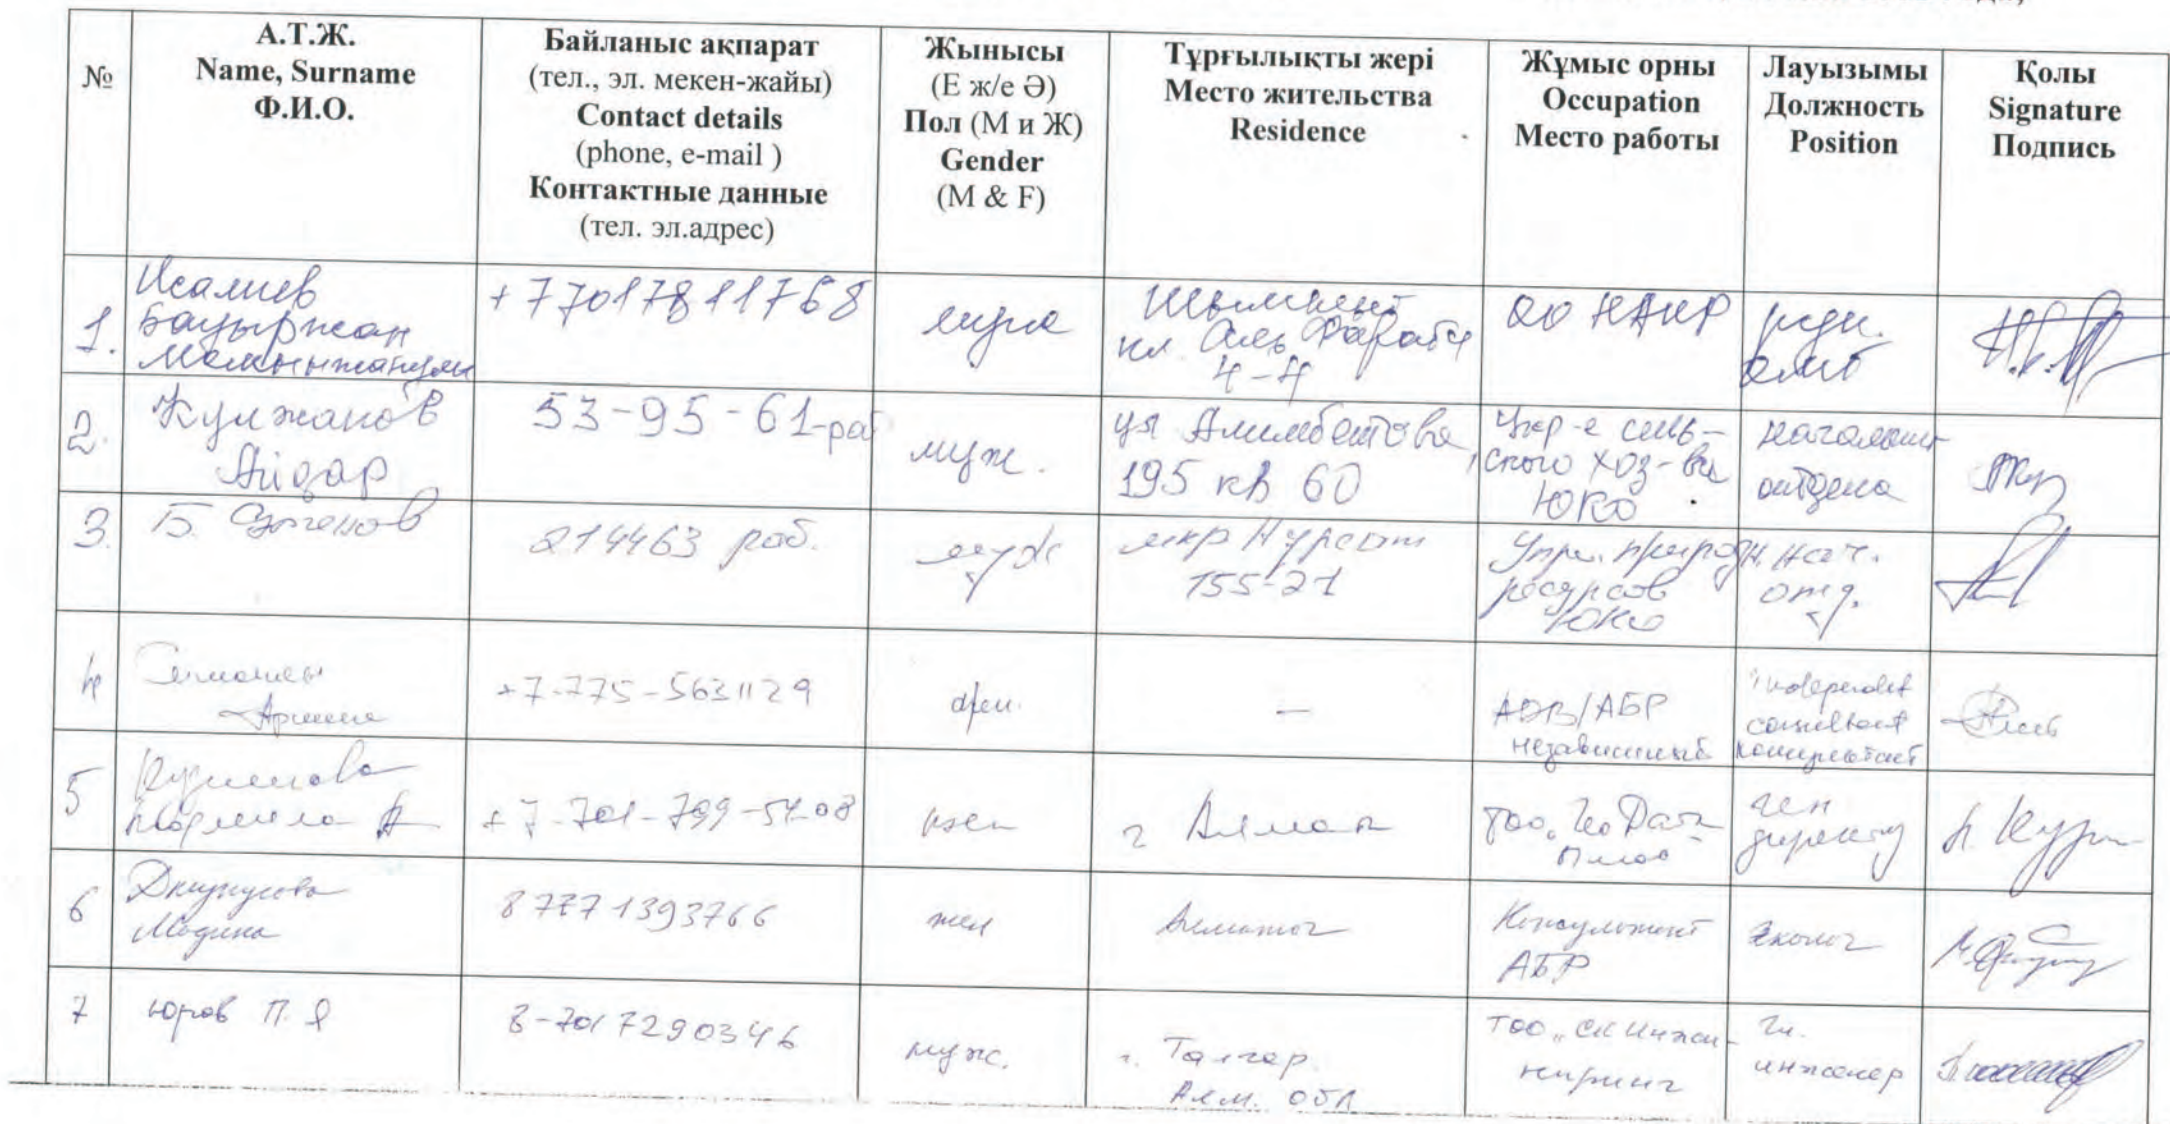 №
А.Т.Ж.
Name, Surname
Ф.И.О.
Байланыс ақпарат
(тел., эл. мекен-жайы)
Contact details
(phone, e-mail )
Контактные данные
(тел. эл.адрес)
Жынысы
(Е ж/е Ә)
Пол (М и Ж)
Gender
(M & F)
Тұрғылықты жері
Место жительства
Residence
Жұмыс орны
Occupation
Место работы
Лауызымы
Должность
Position
Қолы
Signature
Подпись
1.
Исалиев
Бауыржан
+77017811768
муж
Шымкент
пл. Аль Фараби
2.
Кулжанов
Айдар
53-95-61-раб
муж.
ул Алимбетова,
195 кв 60
Упр-е сель-
ского хоз-ва
ЮКО
начальник
отдела
3.
214463 раб.
муж
мкр Нурсат
155-21
Упр. природн.
ресурсов
ЮКО
нач.
отд.
4
+7-775-5631129
жен.
—
ADB/АБР
независимый
independet
consultant
консультант
5
Людмила А
+7-701-799-54-08
жен
г Алматы
ТОО „Гео Дата
Плюс
ген
директор
6
Мадина
87771393766
жен
Алматы
Консультант
АБР
Эколог
7
Юров П. Я
8-7017290346
муж.
г. Талгар.
Алм. обл
ТОО „СК Инжи-
ниринг
Гл.
инженер